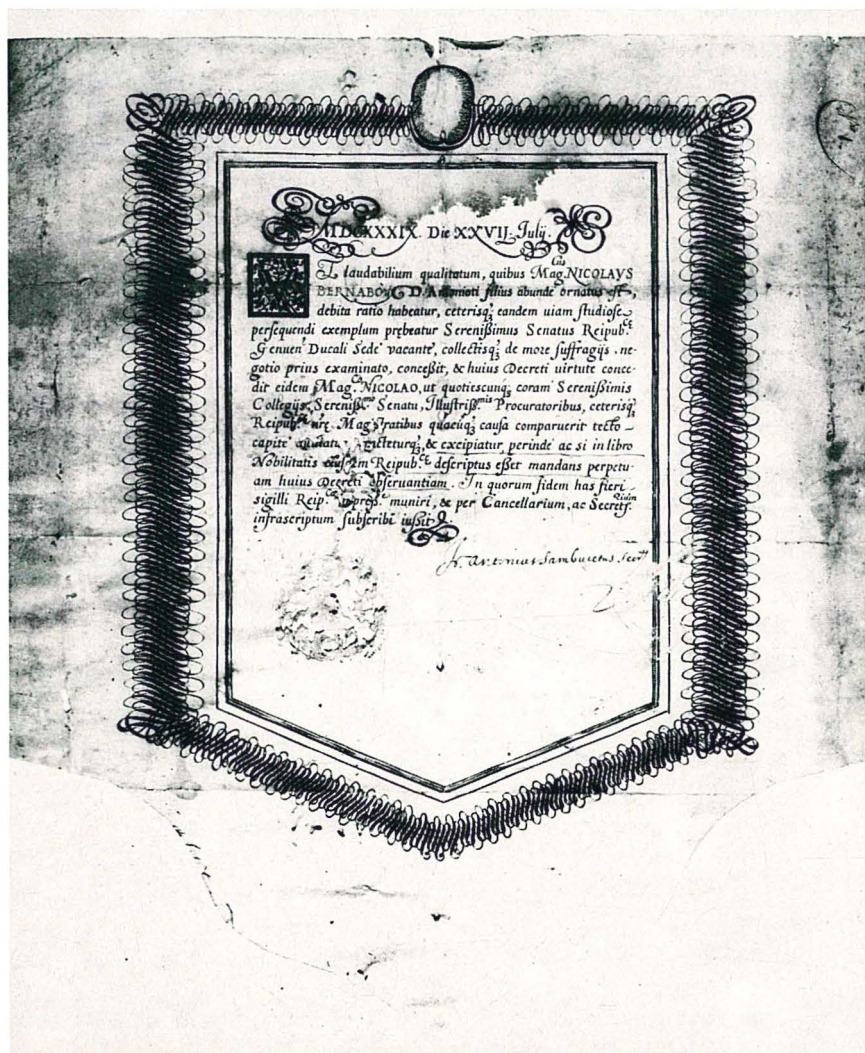 MDCXXXIX. Die XXVIJ. Julij.
VT laudabilium qualitatum, quibus Mag.cus NICOLAVS
BERNABOVS D. Antonioti filius abunde ornatus est,
debita ratio habeatur, ceterisq; eandem uiam studiose
persequendi exemplum prębeatur Serenißimus Senatus Reipub.ce
Genuen. Ducali Sede vacante, collectisq; de more suffragijs, ne-
gotio prius examinato, conceßit, & huius Decreti virtute conce-
dit eidem Mag.co NICOLAO, ut quotiescunq; coram Serenißimis
Collegijs, Sereniß.mo Senatu, Illustriß.mis Procuratoribus, ceterisq;
Reipub.ce nrę Magistratibus quacuq; causa comparuerit tecto
capite audiatur, & excipiatur, perinde ac si in libro
Nobilitatis eiusdem Reipub.ce descriptus esset mandans perpetu-
am huius Decreti obseruantiam. In quorum fidem has fieri
sigilli Reip.ce impreß.e muniri, & per Cancellarium, ac Secret.
infrascriptum subscribi iussit.
Antonius Sambucetus Secr.